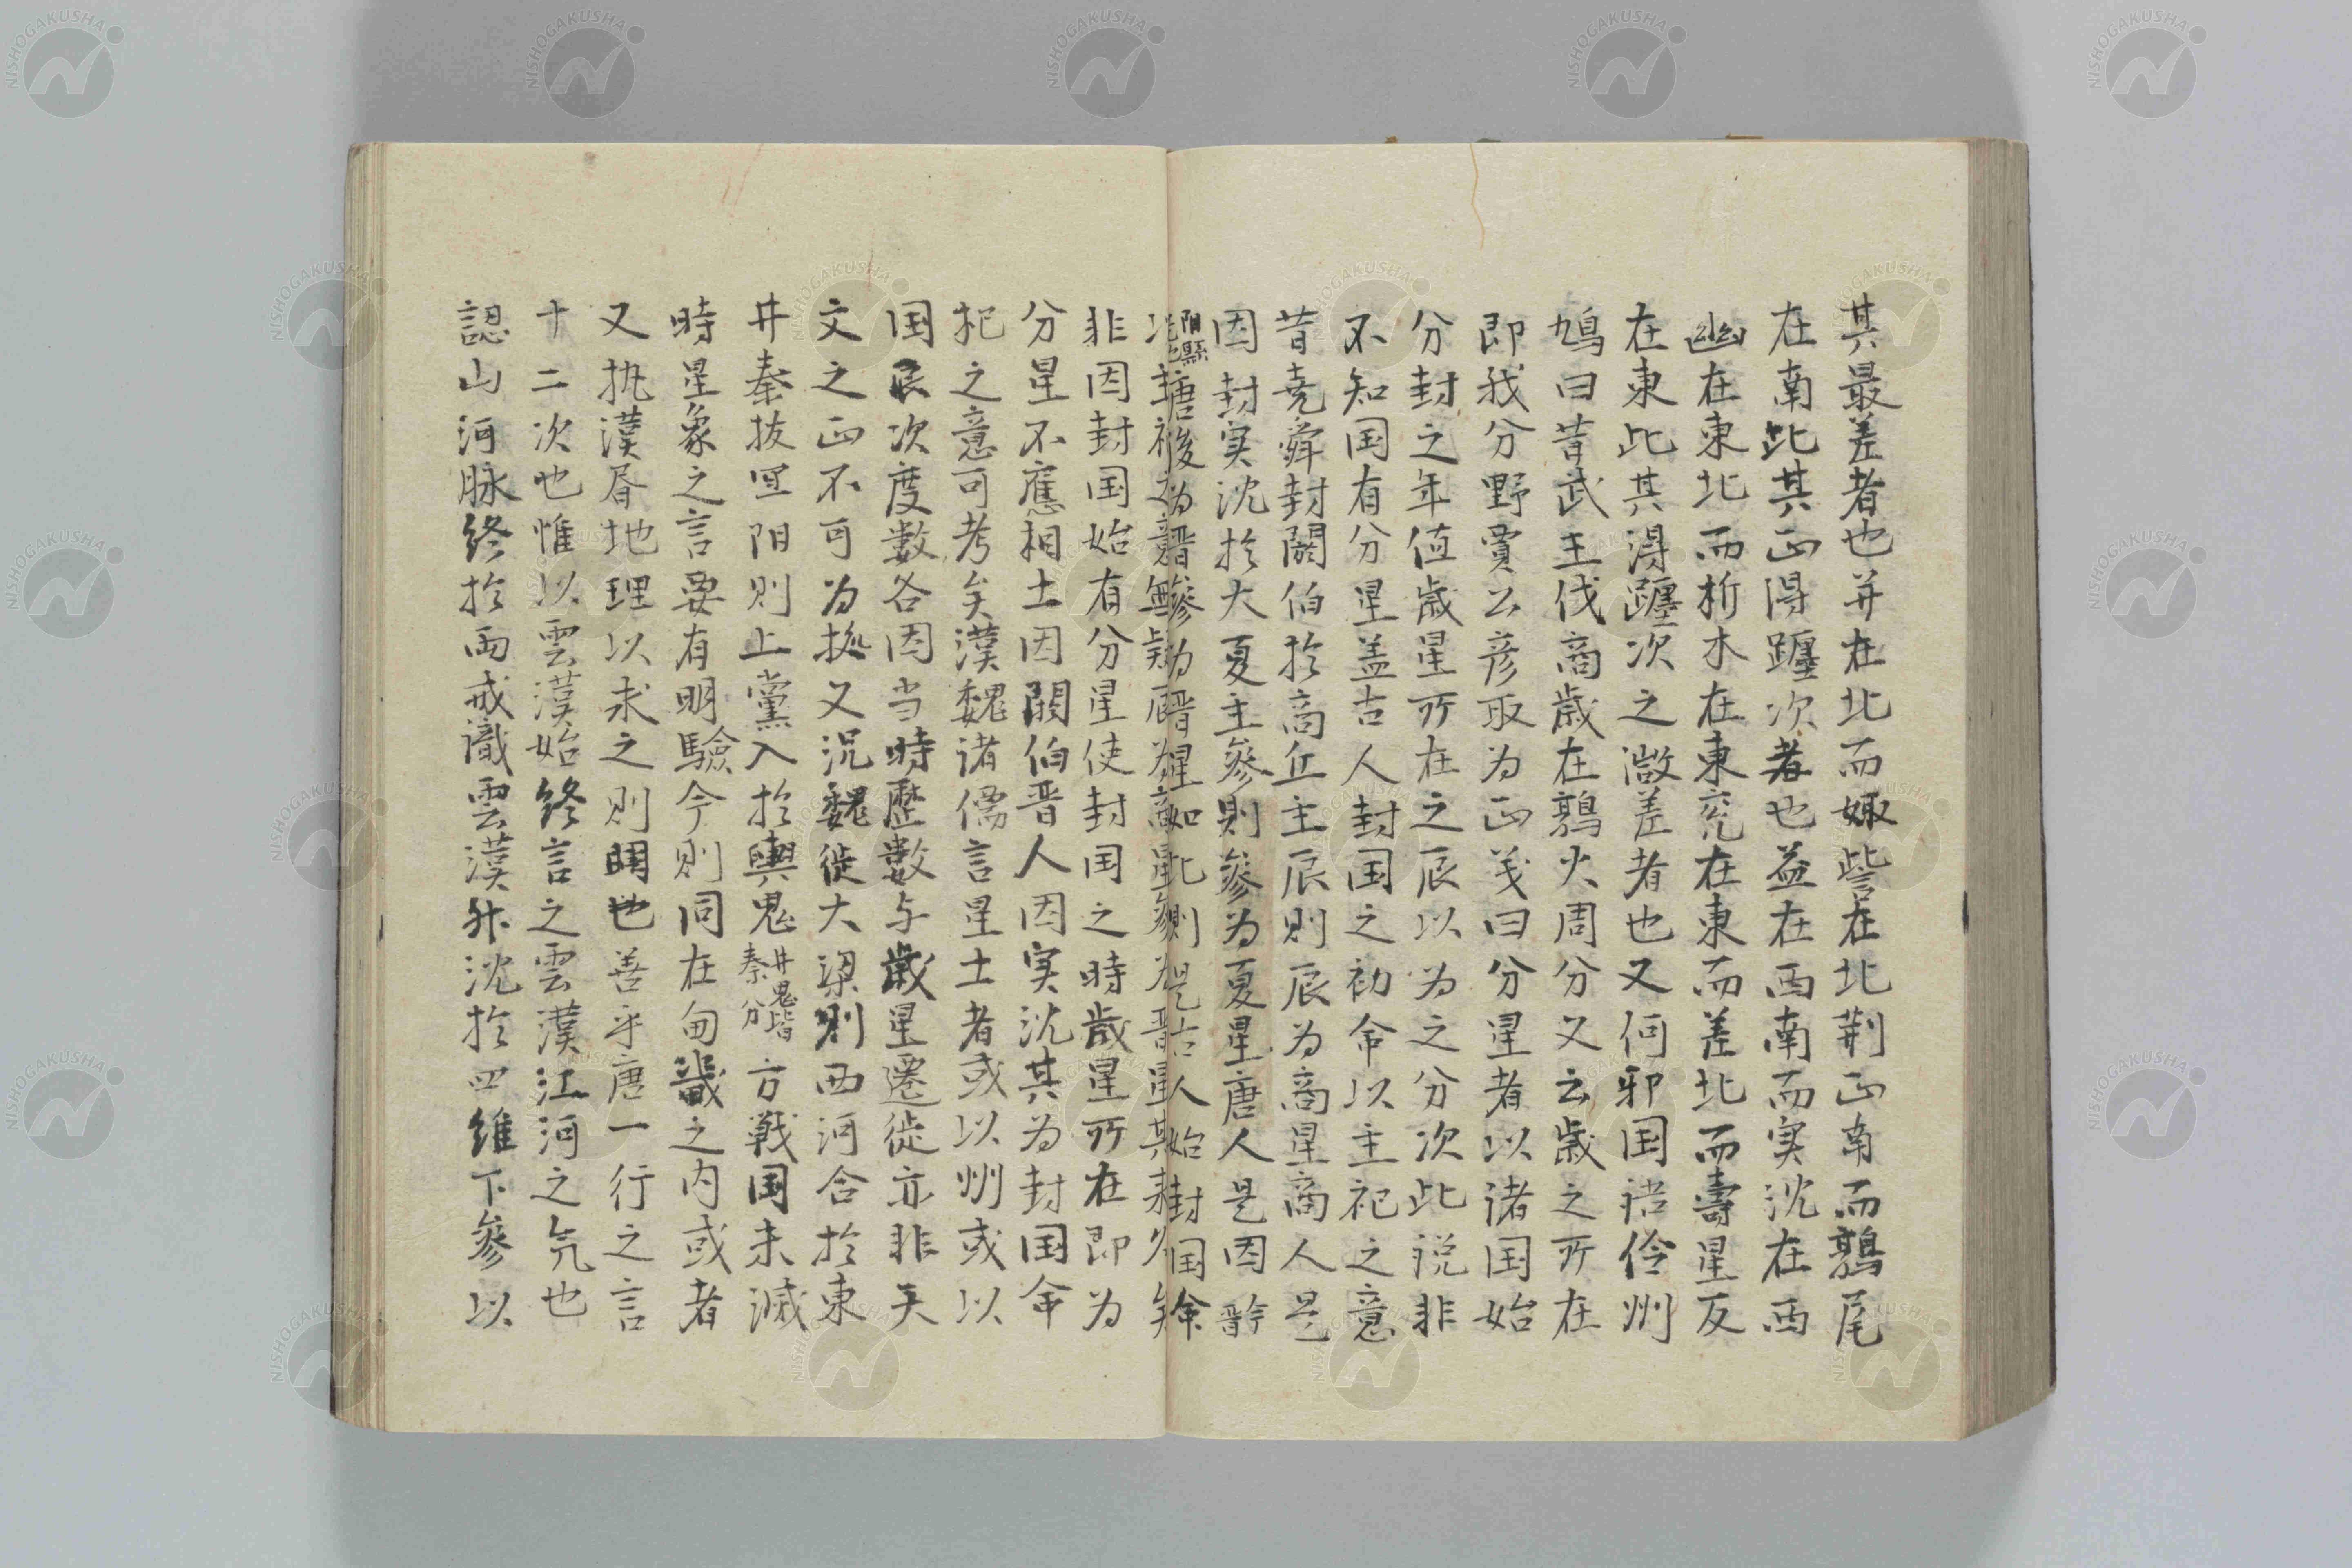 其最差者也并在北而娵訾在北荆正南而鶉尾
在南此其正得躔次者也益在西南而実沈在西
幽在東北而析木在東兖在東而差北而壽星反
在東此其得躔次之㳽差者也又何邪国語伶州
鳩曰昔武王伐商歳在鶉火周分又云歳之所在
即我分野賈公彦取为正義曰分星者以諸国始
分封之年值歳星所在之辰以为之分次此説非
不知国有分星盖古人封国之初命以主祀之意
昔尭舜封閼伯於商丘主辰則辰为商星商人是
因封実沈於大夏主參則參为夏星唐人是因
非因封国始有分星使封国之時歳星所在即为
分星不應相土因閼伯晋人因実沈其为封国命
祀之意可考矣漢魏諸儒言星土者或以州或以
国辰次度数各因当時歴数与歳星遷徙亦非天
文之正不可为拠又況魏徙大梁則西河合於東
井秦拔冝阳則上黨入於輿鬼井鬼皆秦分方戦国未滅
時星象之言要有明驗今則同在甸畿之内或者
又执漢㫺地理以求之則䦕也善乎唐一行之言
十二次也惟以雲漢始終言之雲漢江河之氕也
認山河脉終於両戒識雲漢升沈於四維下參以